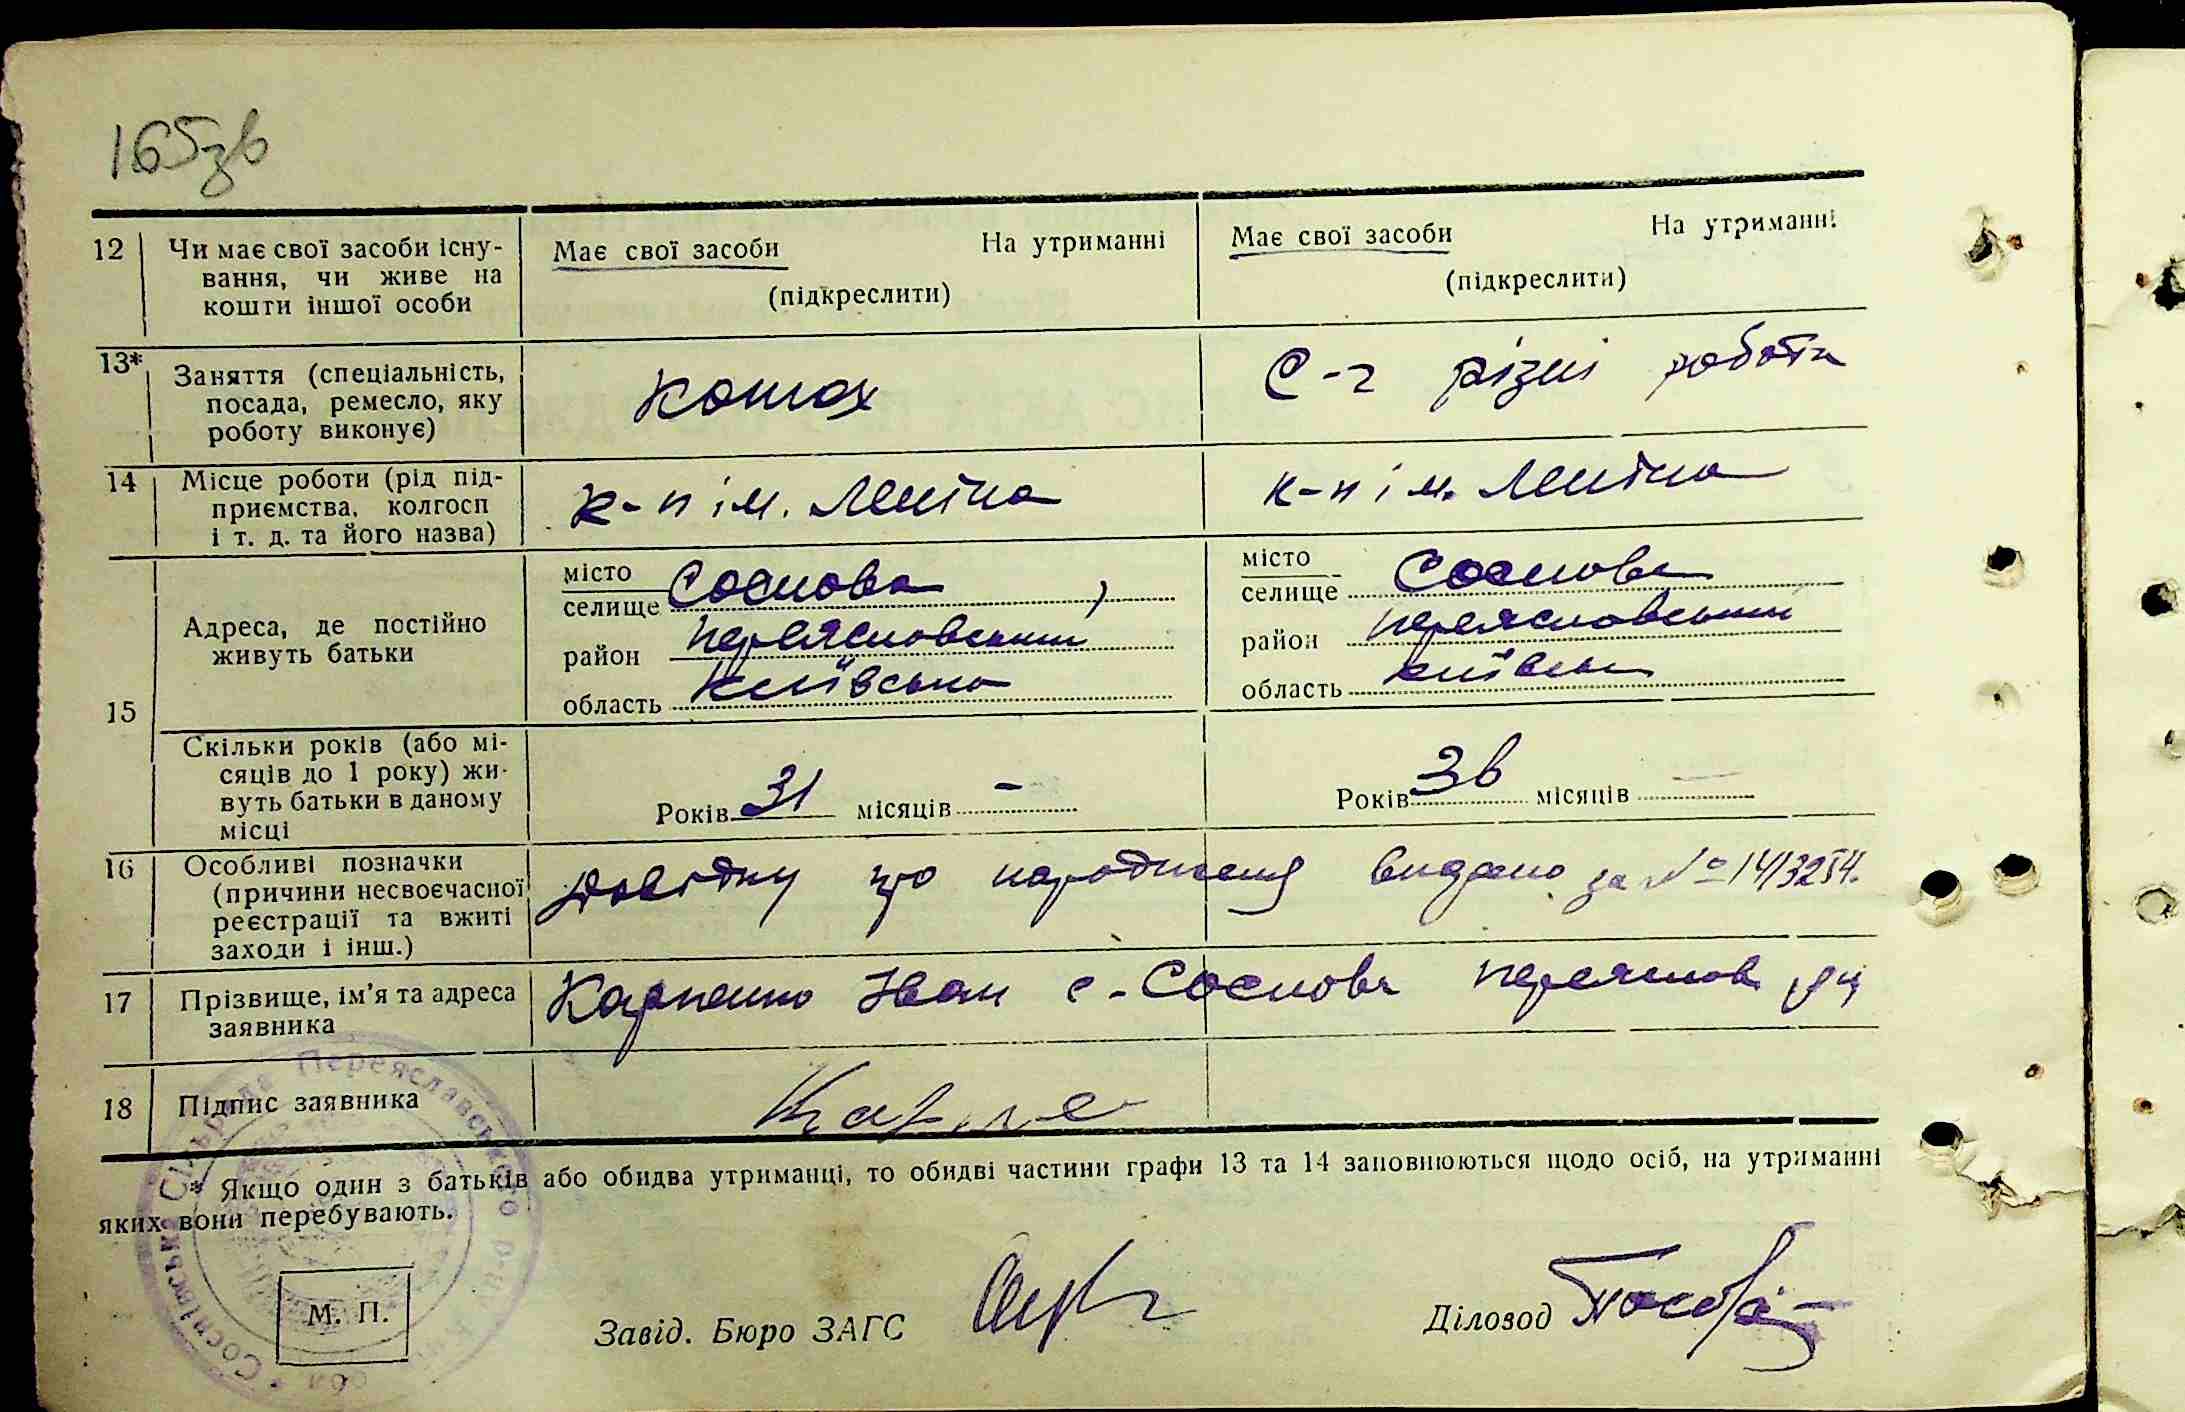 165зв
12 Чи має свої засоби існу-
вання, чи живе на
кошти іншої особи
Має свої засоби На утриманні
(підкреслити)
Має свої засоби На утриманні
(підкреслити)
13* Заняття (спеціальність,
посада, ремесло, яку
роботу виконує)
Конюх
С-г різні роботи
14 Місце роботи (рід під-
приємства, колгосп
і т. д. та його назва)
к-п ім. Леніна
к-п ім. Леніна
15 Адреса, де постійно
живуть батьки
місто
селище Соснова
район Переяславський
область Київська
місто
селище Соснова
район Переяславський
область Київська
Скільки років (або мі-
сяців до 1 року) жи-
вуть батьки в даному
місці
Років 31 місяців –
Років 36 місяців –
16 Особливі позначки
(причини несвоєчасної
реєстрації та вжиті
заходи і інш.)
Довідку про народження видано за № 1413254.
17 Прізвище, ім'я та адреса
заявника
Карпенко Іван с. Соснова Переяслов
18 Підпис заявника
* Якщо один з батьків або обидва утриманці, то обидві частини графи 13 та 14 заповнюються щодо осіб, на утриманні
яких вони перебувають.
Соснівська Сільрада Переяславського р-ну
обл
М. П.
Завід. Бюро ЗАГС
Діловод